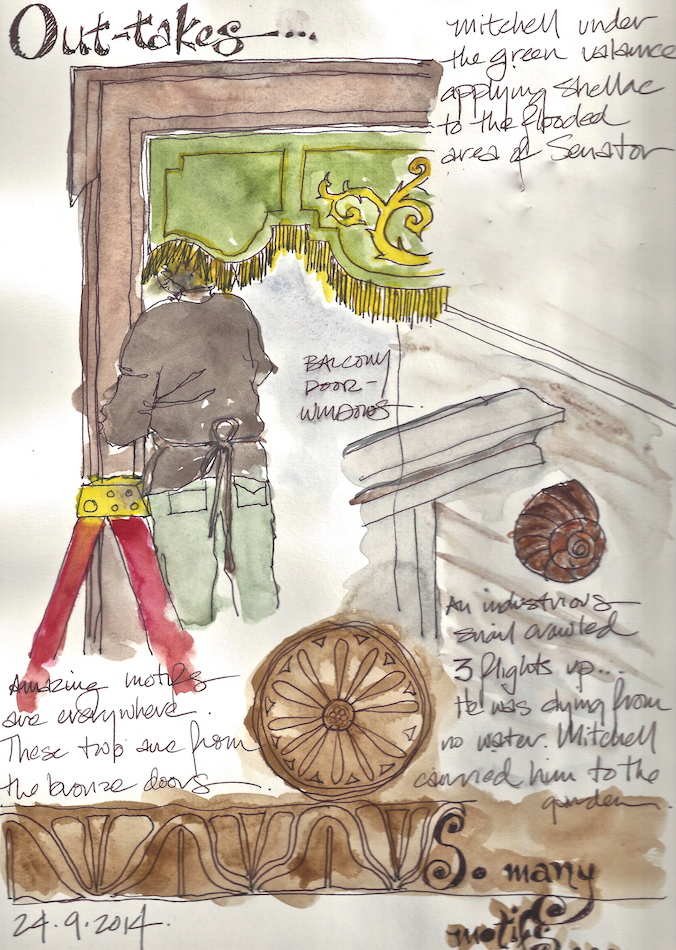 Out-takes...
Mitchell under
the green valance
applying Shellac
to the flooded
area of Senator
BALCONY
DOOR-
WINDOWS
An industrious
snail crawled
3 flights up...
He was dying from
no water. Mitchell
carried him to the
garden.
Amazing motifs
are everywhere.
These two are from
the bronze doors.
So many
motifs
24.9.2014.